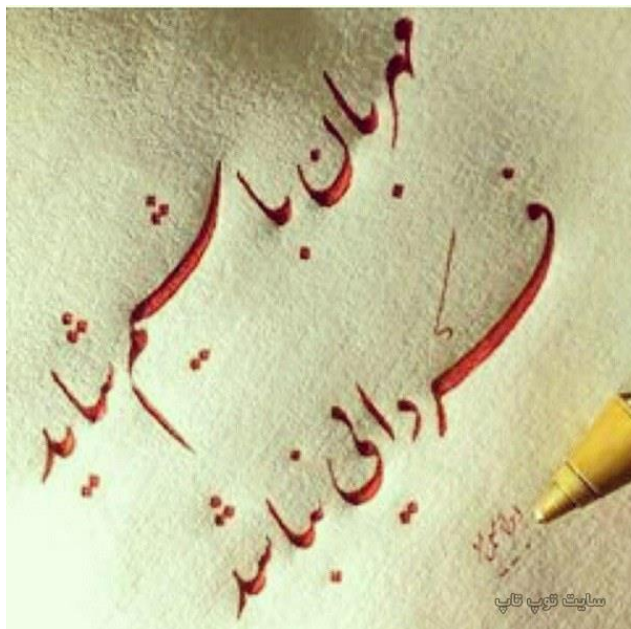 مهربان باشیم شاید
فردایی نباشد
سایت توپ تاپ